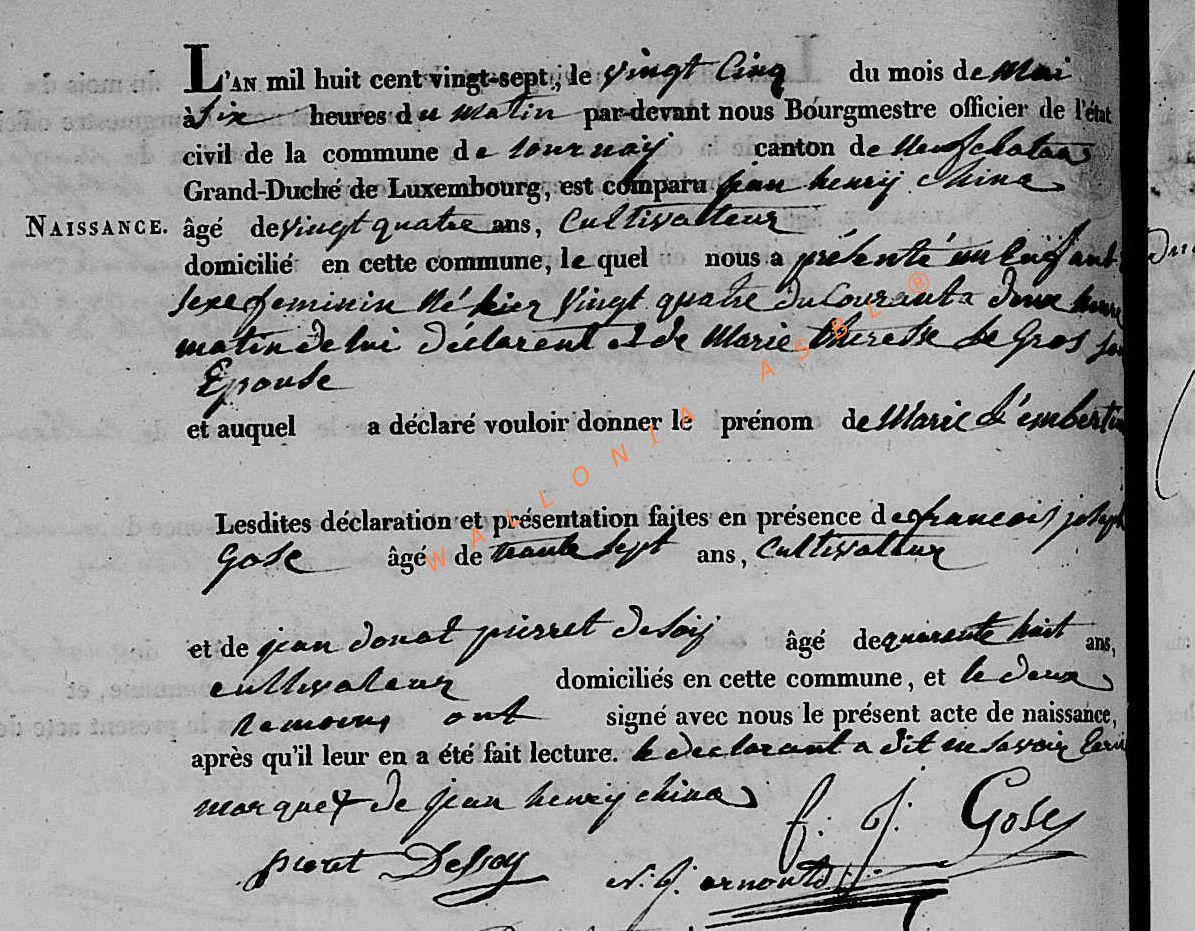 L'AN mil huit cent vingt-sept, le vingt Cinq du mois de Mai
à Six heures du matin par-devant nous Bourgmestre officier de l'état
civil de la commune de tournay canton de Neufchateau
Grand-Duché de Luxembourg, est comparu jean henrij china
NAISSANCE. âgé de vingt quatre ans, Cultivatteur
domicilié en cette commune, le quel nous a présenté un Enfant
sexe feminin Né hier Vingt quatre du Courant a deux heure
matin de lui déclarent et de Marie theresse Le Gros sa
Epouse
et auquel a déclaré vouloir donner le prénom de Marie
Lesdites déclaration et présentation faites en présence de francois joseph
Gose âgé de trante sept ans, Cultivatteur
et de jean donat pierret desoij âgé de quarente huit ans,
cultivateur domiciliés en cette commune, et le deux
temoins ont signé avec nous le présent acte de naissance,
après qu'il leur en a été fait lecture. le declarant a dit ne savoir Ecrir
marque de jean henrij china
f: j: Gose
pieret Dessoy N. j. arnould
WALLONIA ASBL ®